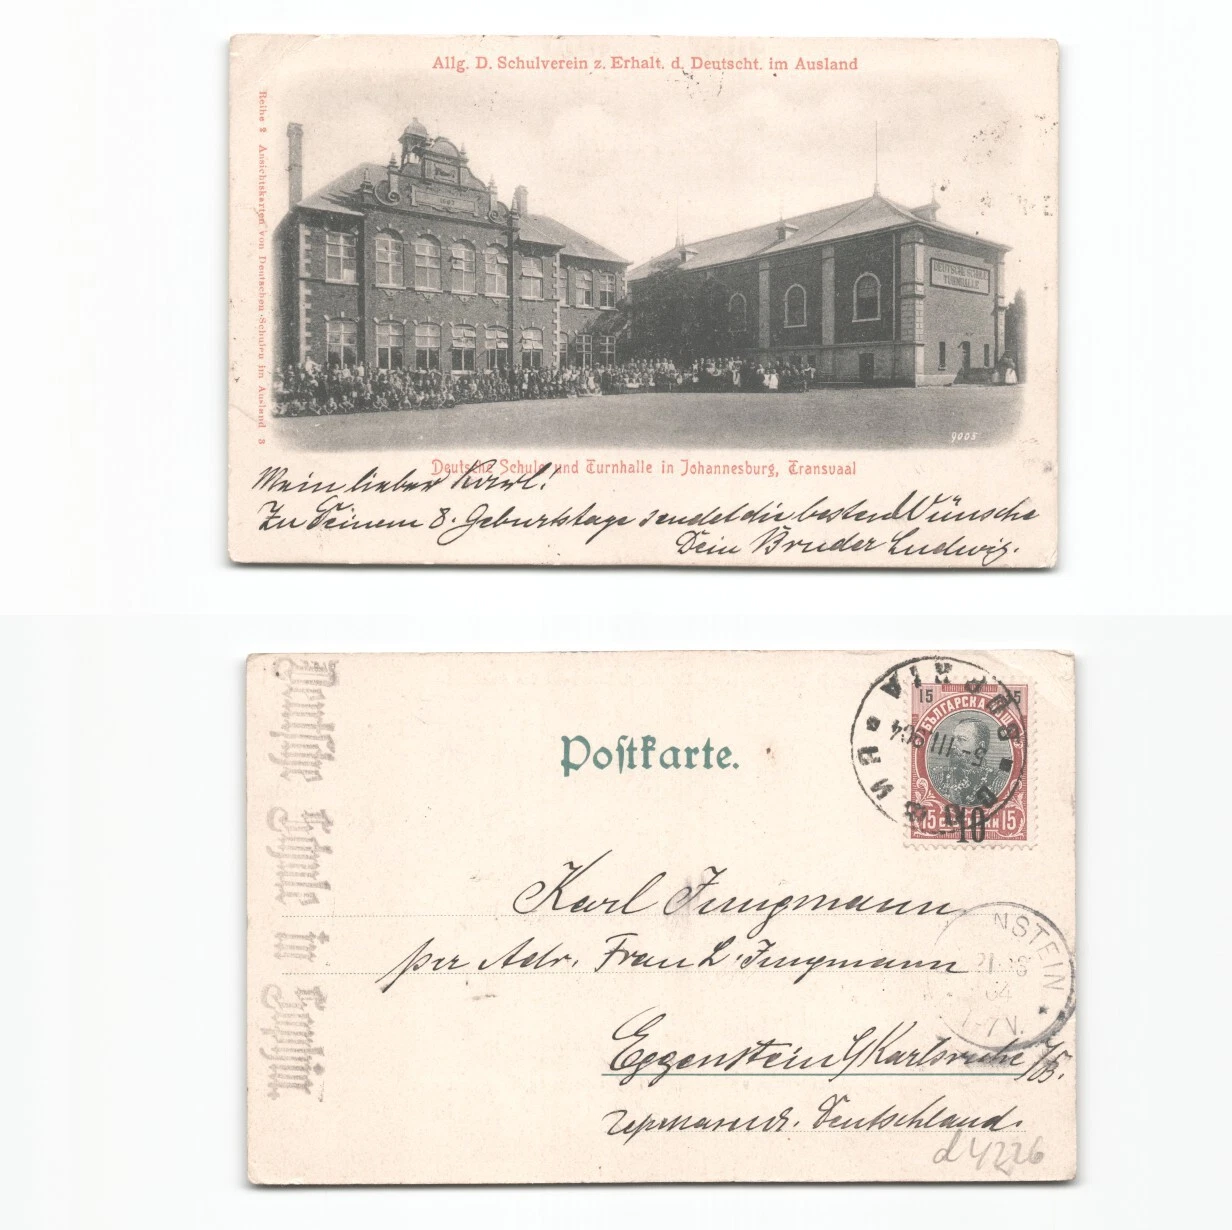 Allg. D. Schulverein z. Erhalt. d. Deutscht. im Ausland
Reihe 2 Ansichtskarten von Deutschen Schulen im Ausland 3
DEUTSCHE SCHULE
TURNHALLE
9005
Deutsche Schule und Turnhalle in Johannesburg, Transvaal
Mein lieber Karl!
Zu Deinem 8. Geburtstage sendet die besten Wünsche
Dein Bruder Ludwig.
Deutsche Schule in Sophia.
Postkarte.
15
15
БЪЛГАРСКА
15
15
10
СОФИЯ
SOPHIA
5-III 904
Karl Jungmann
per Adr. Frau L. Jungmann
Eggenstein b/Karlsruhe i/B.
Deutschland.
NSTEIN
04
-7V.
d4226